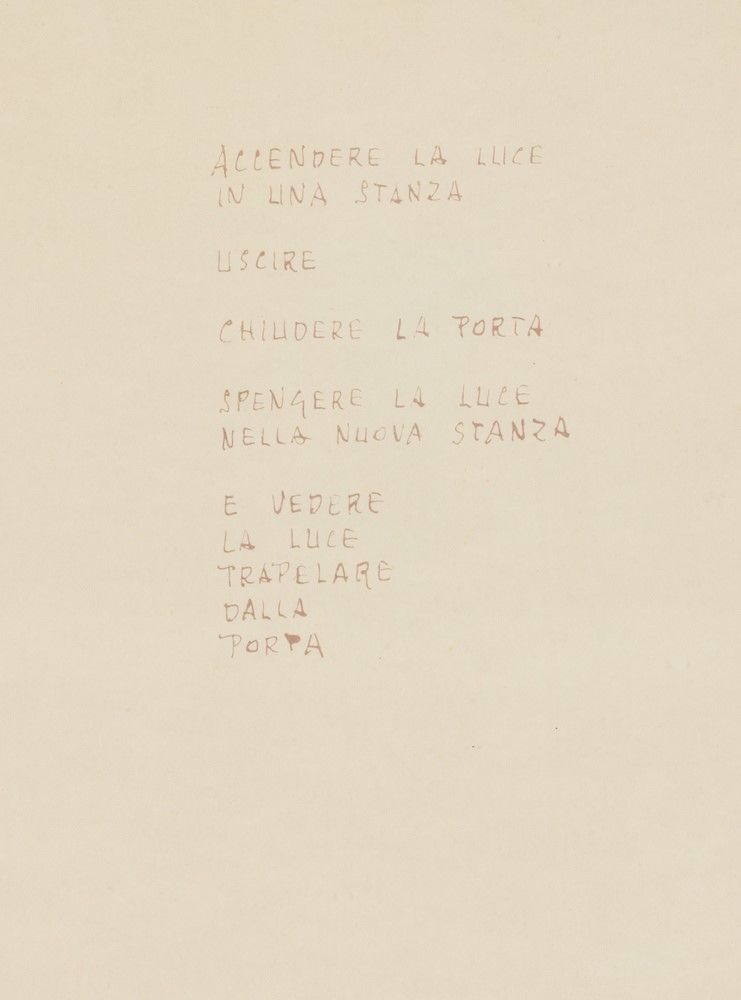 ACCENDERE LA LUCE
IN UNA STANZA
USCIRE
CHIUDERE LA PORTA
SPENGERE LA LUCE
NELLA NUOVA STANZA
E VEDERE
LA LUCE
TRAPELARE
DALLA
PORTA